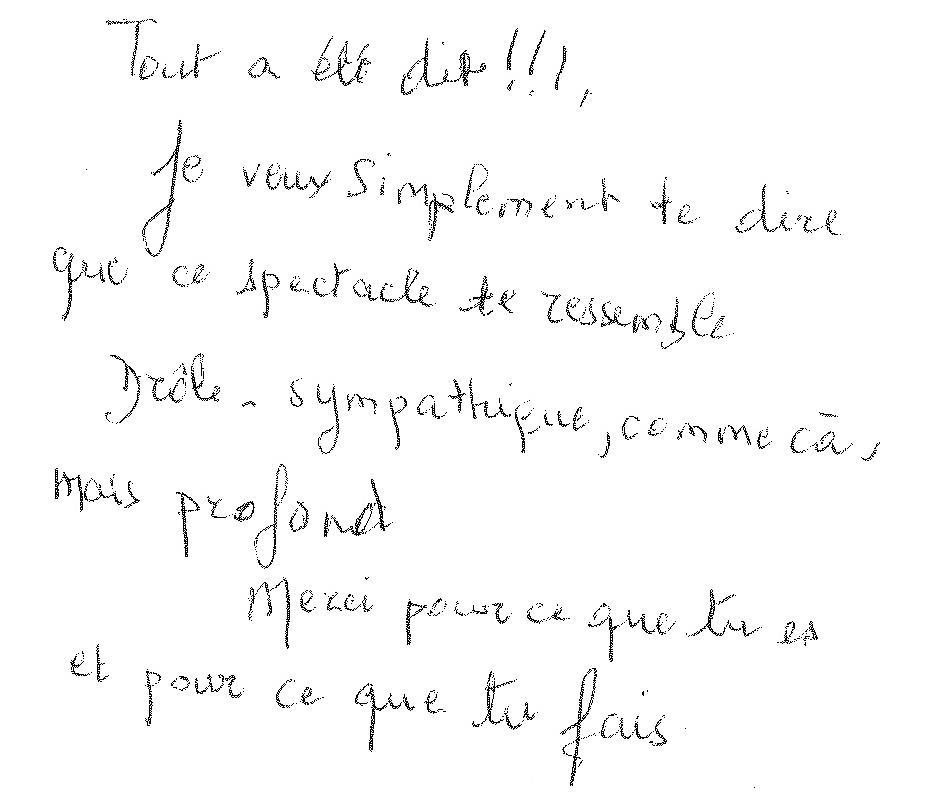 Tout a été dit !!!,
Je veux simplement te dire
que ce spectacle te ressemble
Drôle - sympathique, comme cā,
mais profond
Merci pour ce que tu es
et pour ce que tu fais.